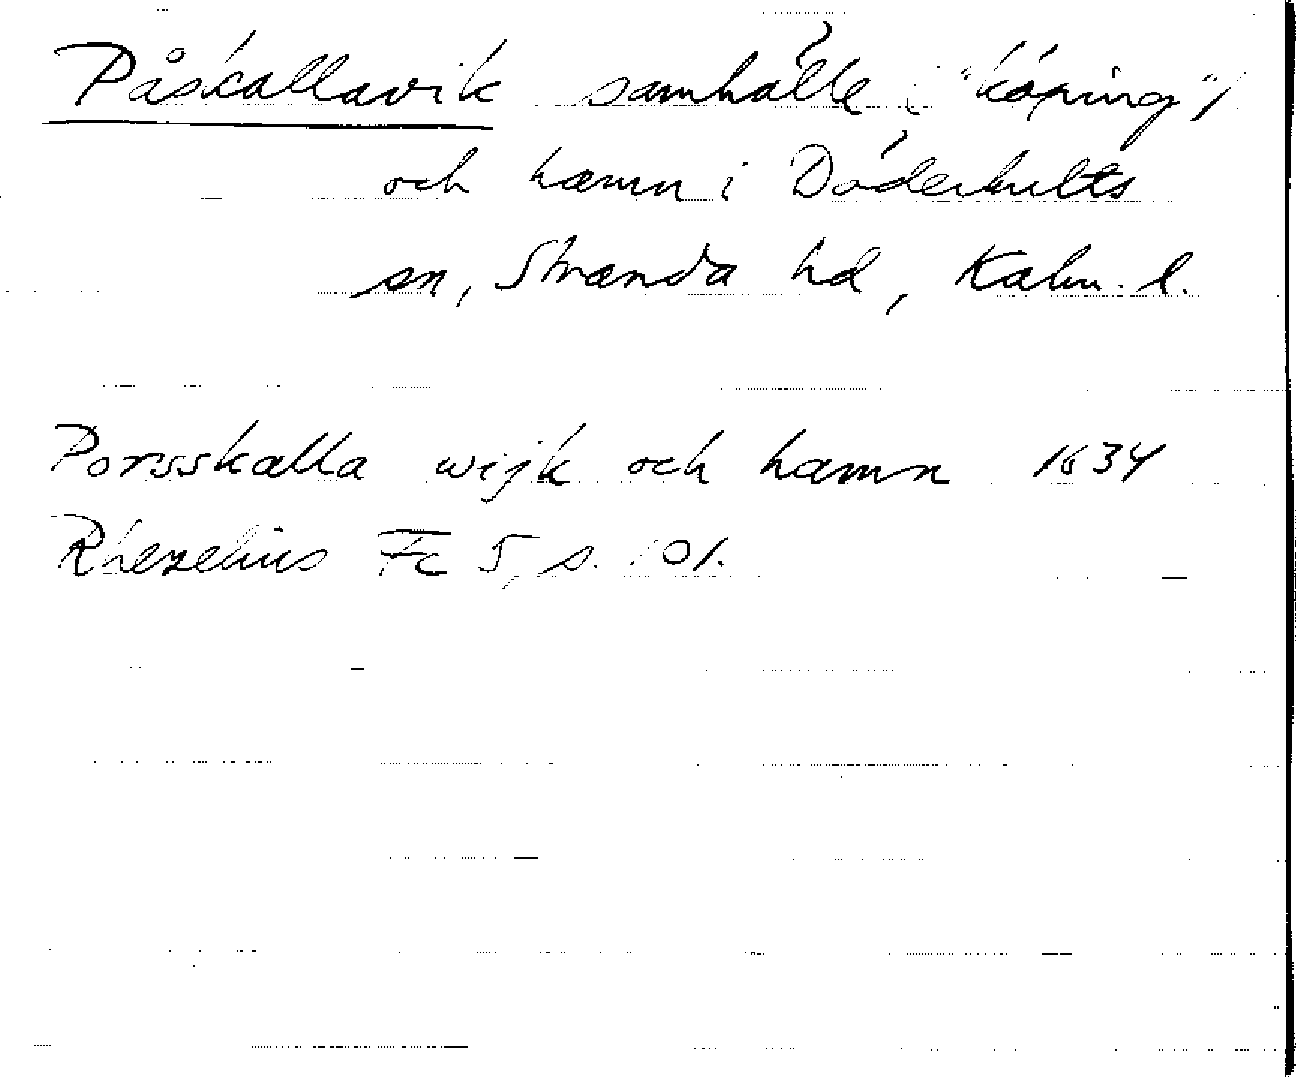 Påskallavik samhälle ("köping")
och hamn i Döderhults
sn, Stranda hd, Kalm. l.
Porsskalla wijk och hamn 1634
Rhezelius Fc 5, s. 101.